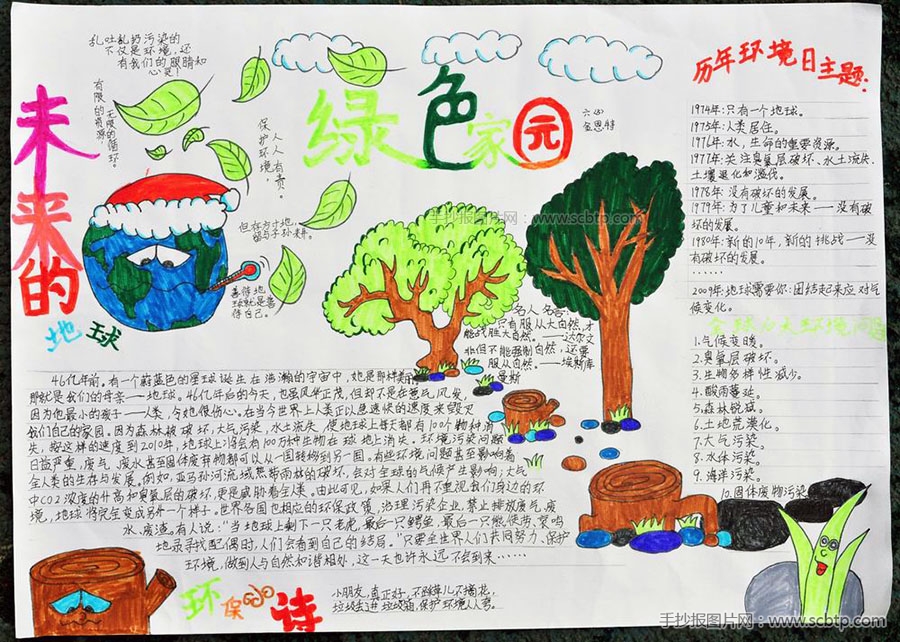 乱吐乱扔污染的
不仅是环境,还
有我们的眼睛和
心灵!
有限的资源,
无限的循环。
保护环境,
人人有责。
但存方寸地,
留与子孙耕。
善待地
球就是善
待自己。
未来的
地球
绿色家园
六(4)
手抄报图片网:www.scbtp.com
历年环境日主题:
1974年:只有一个地球。
1975年:人类居住。
1976年:水,生命的重要资源。
1977年:关注臭氧层破坏、水土流失、
土壤退化和滥伐。
1978年:没有破坏的发展。
1979年:为了儿童和未来——没有破
坏的发展。
1980年:新的10年,新的挑战——没
有破坏的发展。
……
2009年:地球需要你:团结起来应对气
候变化。
全球十大环境问题
1.气候变暖。
2.臭氧层破坏。
3.生物多样性减少。
4.酸雨蔓延。
5.森林锐减。
6.土地荒漠化。
7.大气污染。
8.水体污染。
9.海洋污染。
10.固体废物污染。
名人名言:
只有服从大自然,才
能战胜大自然。——达尔文
非但不能强制自然,还要
服从自然。——埃斯库
曼斯
46亿年前。有一个蔚蓝色的星球诞生在浩瀚的宇宙中,她是那样美丽
那就是我们的母亲——地球。46亿年后的今天,也虽风华正茂,但却不是在意气风发,
因为他最小的孩子——人类,令她很伤心。在当今世界上人类正以急速快的速度来毁灭
我们自己的家园。因为森林被破坏,大气污染,水土流失,使地球上每天都有100个物种消
失,按这样的速度到2010年,地球上将会有100万种生物在球地上消失。环境污染问题
日益严重,废气、废水甚至固体废弃物都可以从一国转移到另一国。有些环境问题甚至影响着
全人类的生存与发展。例如,亚马孙河流域热带雨林的破坏,会对全球的气候产生影响;大气
中CO2浓度的升高和臭氧层的破坏,更是威胁着全人类。由此可见,如果人们再不重视我们身边的环
境,地球将完全变成另外一个样子。世界各国也相应的环保政策,治理污染企业,禁止排放废气、废
水、废渣。有人说:"当地球上剩下一只老虎,最后一只鳄鱼,最后一只熊候奔,望鸣
地求寻找配偶时,人们会看到自己的结局。"只要全世界人们共同努力、保护
环境,做到人与自然和谐相处,这一天也许永远不会到来……
环保小诗
小朋友,真正好,不踩草儿不摘花,
垃圾丢进垃圾箱,保护环境人人夸。
手抄报图片网:www.scbtp.com